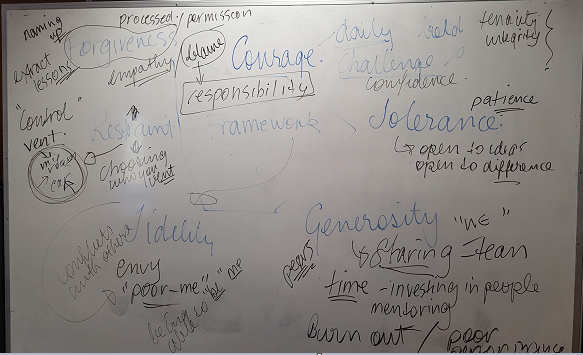 naming
up
processed / permission
Forgiveness
extract
lessons
empathy
blame
responsibility
Courage.
daily bold
Challenge
confidence.
tenacity
integrity
"control"
vent.
Restraint
choosing
who you
vent
Framework
Tolerance.
patience
open to ideas
open to difference
Fidelity
conflicts
with others
envy
"poor-me"
being
able to
me
Generosity
"WE"
peers
Sharing - team
time - investing in people
mentoring
Burn out / poor